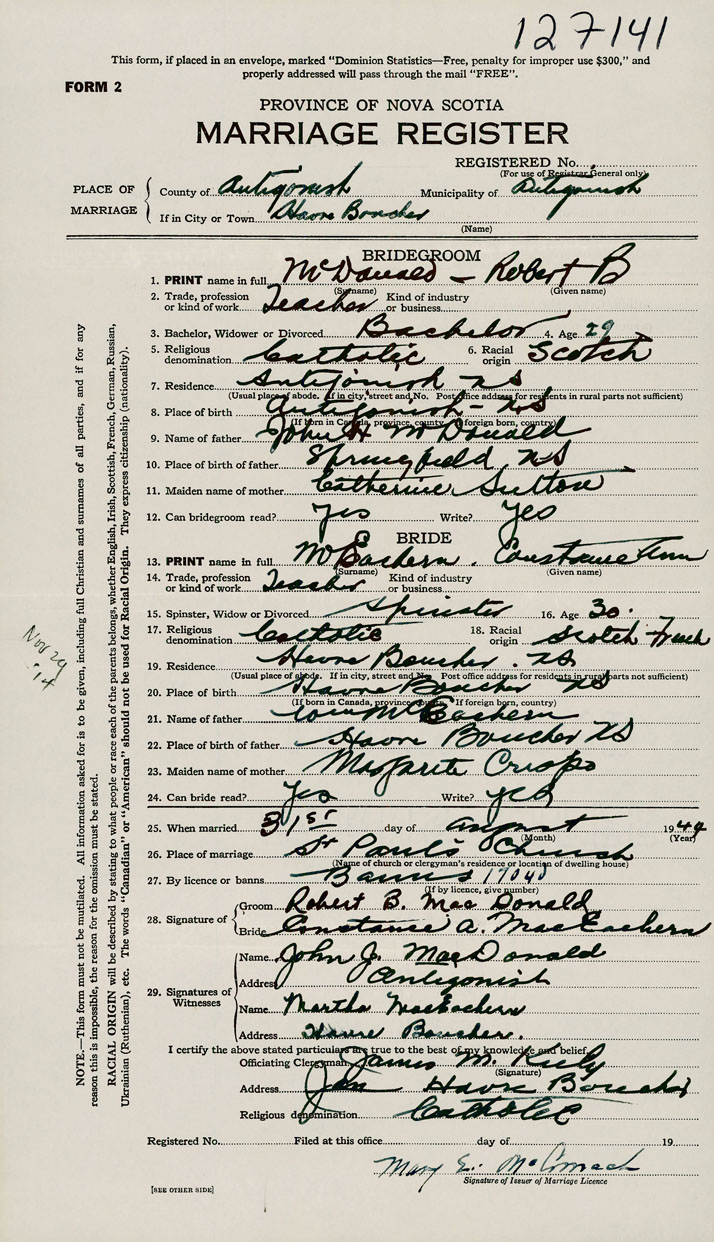 127141
This form, if placed in an envelope, marked "Dominion Statistics—Free, penalty for improper use $300," and
properly addressed will pass through the mail "FREE".
FORM 2
PROVINCE OF NOVA SCOTIA
MARRIAGE REGISTER
REGISTERED No.
(For use of Registrar General only)
PLACE OF MARRIAGE
County of Antigonish Municipality of Antigonish
If in City or Town Havre Boucher
(Name)
BRIDEGROOM
1. PRINT name in full McDonald - Robert B
(Surname) (Given name)
2. Trade, profession or kind of work Teacher Kind of industry or business
3. Bachelor, Widower or Divorced Bachelor 4. Age 29
5. Religious denomination Catholic 6. Racial origin Scotch
7. Residence Antigonish NS
(Usual place of abode. If in city, street and No. Post office address for residents in rural parts not sufficient)
8. Place of birth Antigonish - NS
(If born in Canada, province, county. If foreign born, country)
9. Name of father John H McDonald
10. Place of birth of father Springfield NS
11. Maiden name of mother Catherine Sutton
12. Can bridegroom read? Yes Write? Yes
BRIDE
13. PRINT name in full McEachern. Constance Ann
(Surname) (Given name)
14. Trade, profession or kind of work Teacher Kind of industry or business
15. Spinster, Widow or Divorced Spinster 16. Age 30.
17. Religious denomination Catholic 18. Racial origin Scotch-French
19. Residence Havre Boucher. NS
(Usual place of abode. If in city, street and No. Post office address for residents in rural parts not sufficient)
20. Place of birth Havre Boucher NS
(If born in Canada, province, county. If foreign born, country)
21. Name of father McEachern
22. Place of birth of father Havre Boucher NS
23. Maiden name of mother Margarite Crispo
24. Can bride read? Yes Write? yes
25. When married 31st day of august 1944
(Month) (Year)
26. Place of marriage St Paul's Church
(Name of church or clergyman's residence or location of dwelling house)
27. By licence or banns Banns
(If by licence, give number)
28. Signature of
Groom Robert B. Mac Donald
Bride Constance A. MacEachern
29. Signatures of Witnesses
Name John J. MacDonald
Address Antigonish
Name Martha MacEachern
Address Havre Boucher.
I certify the above stated particulars are true to the best of my knowledge and belief.
Officiating Clergyman James M. Kiely
(Signature)
Address Havre Boucher
Religious denomination Catholic
Registered No. Filed at this office day of 19
Mary E. McCormack
Signature of Issuer of Marriage Licence
[SEE OTHER SIDE]
NOTE.—This form must not be mutilated. All information asked for is to be given, including full Christian and surnames of all parties, and if for any
reason this is impossible, the reason for the omission must be stated.
RACIAL ORIGIN will be described by stating to what people or race each of the parents belongs, whether English, Irish, Scottish, French, German, Russian,
Ukrainian (Ruthenian), etc. The words "Canadian" or "American" should not be used for Racial Origin. They express citizenship (nationality).
Nov 29